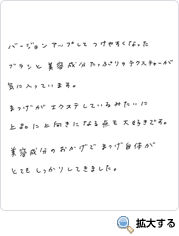 バージョンアップしてつけやすくなった
ブラシと美容成分たっぷりのテクスチャーが
気に入っています。
まつげがエクステしているみたいに
上品に上向きになる点も大好きです。
美容成分のおかげでまつげ自体が
とてもしっかりしてきました。
拡大する